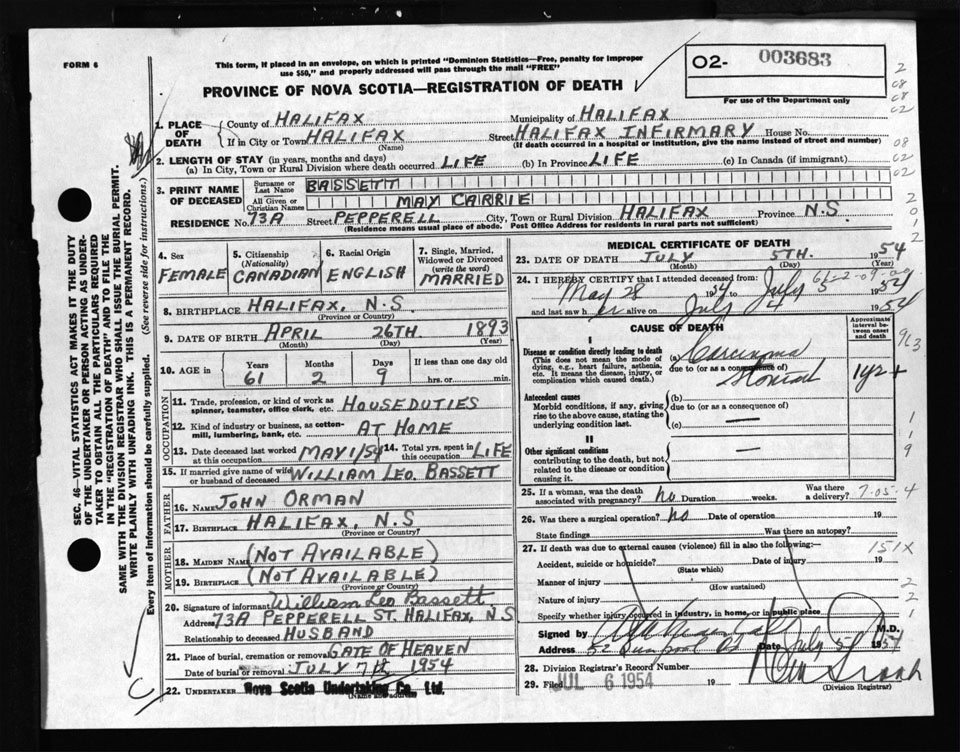 FORM 6
This form, if placed in an envelope, on which is printed "Dominion Statistics—Free, penalty for improper
use $50," and properly addressed will pass through the mail "FREE"
PROVINCE OF NOVA SCOTIA—REGISTRATION OF DEATH
02- 003683
For use of the Department only
1. PLACE OF DEATH
County of HALIFAX Municipality of HALIFAX
If in City or Town HALIFAX Street HALIFAX INFIRMARY House No.
(Name) (If death occurred in a hospital or institution, give the name instead of street and number)
2. LENGTH OF STAY (in years, months and days)
(a) In City, Town or Rural Division where death occurred LIFE (b) In Province LIFE (c) In Canada (if immigrant)
3. PRINT NAME OF DECEASED
Surname or Last Name BASSETT
All Given or Christian Names MAY CARRIE
RESIDENCE No. 73A Street PEPPERELL City, Town or Rural Division HALIFAX Province N.S.
(Residence means usual place of abode. Post Office Address for residents in rural parts not sufficient)
4. Sex FEMALE
5. Citizenship (Nationality) CANADIAN
6. Racial Origin ENGLISH
7. Single, Married, Widowed or Divorced (write the word) MARRIED
8. BIRTHPLACE HALIFAX, N.S.
(Province or Country)
9. DATE OF BIRTH APRIL 26TH 1893
(Month) (Day) (Year)
10. AGE in Years Months Days If less than one day old
61 2 9 hrs. or min.
OCCUPATION
11. Trade, profession, or kind of work as spinner, teamster, office clerk, etc. HOUSEDUTIES
12. Kind of industry or business, as cotton-mill, lumbering, bank, etc. AT HOME
13. Date deceased last worked at this occupation MAY 1/54
14. Total yrs. spent in this occupation LIFE
15. If married give name of wife or husband of deceased WILLIAM LEO. BASSETT
FATHER
16. Name JOHN ORMAN
17. Birthplace HALIFAX, N.S
(Province or Country)
MOTHER
18. Maiden Name (NOT AVAILABLE)
19. Birthplace (NOT AVAILABLE)
(Province or Country)
20. Signature of informant William Leo Bassett
Address 73A PEPPERELL ST. HALIFAX, N.S
Relationship to deceased HUSBAND
21. Place of burial, cremation or removal GATE OF HEAVEN
Date of burial or removal JULY 7th 1954
22. UNDERTAKER Nova Scotia Undertaking Co., Ltd.
(Name and address)
MEDICAL CERTIFICATE OF DEATH
23. DATE OF DEATH JULY 5TH. 1954
(Month) (Day) (Year)
24. I HEREBY CERTIFY that I attended deceased from:
May 28 1954 to July 5 1954
and last saw her alive on July 4 1954
CAUSE OF DEATH
Approximate interval between onset and death
I
Disease or condition directly leading to death
(This does not mean the mode of dying, e.g., heart failure, asthenia, etc. It means the disease, injury, or complication which caused death.)
(a) Carcinoma
due to (or as a consequence of)
Stomach 1yr +
Antecedent causes
Morbid conditions, if any, giving rise to the above cause, stating the underlying condition last.
(b)
due to (or as a consequence of)
(c)
II
Other significant conditions
contributing to the death, but not related to the disease or condition causing it.
25. If a woman, was the death associated with pregnancy? no Duration weeks. Was there a delivery? 7-05-4
26. Was there a surgical operation? no Date of operation 19
State findings Was there an autopsy?
27. If death was due to external causes (violence) fill in also the following:—
151X
Accident, suicide or homicide? Date of injury 19
(State which)
Manner of injury
(How sustained)
Nature of injury
Specify whether injury occurred in industry, in home, or in public place
Signed by M.D.
Address 52 Date July 5/ 1954
28. Division Registrar's Record Number
29. Filed JUL 6 1954 19
(Division Registrar)
SEC. 46—VITAL STATISTICS ACT MAKES IT THE DUTY
OF THE UNDERTAKER OR PERSON ACTING AS UNDER-
TAKER TO OBTAIN ALL THE PARTICULARS REQUIRED
IN THE "REGISTRATION OF DEATH" AND TO FILE THE
SAME WITH THE DIVISION REGISTRAR WHO SHALL ISSUE THE BURIAL PERMIT.
WRITE PLAINLY WITH UNFADING INK. THIS IS A PERMANENT RECORD.
Every item of information should be carefully supplied. (See reverse side for instructions.)